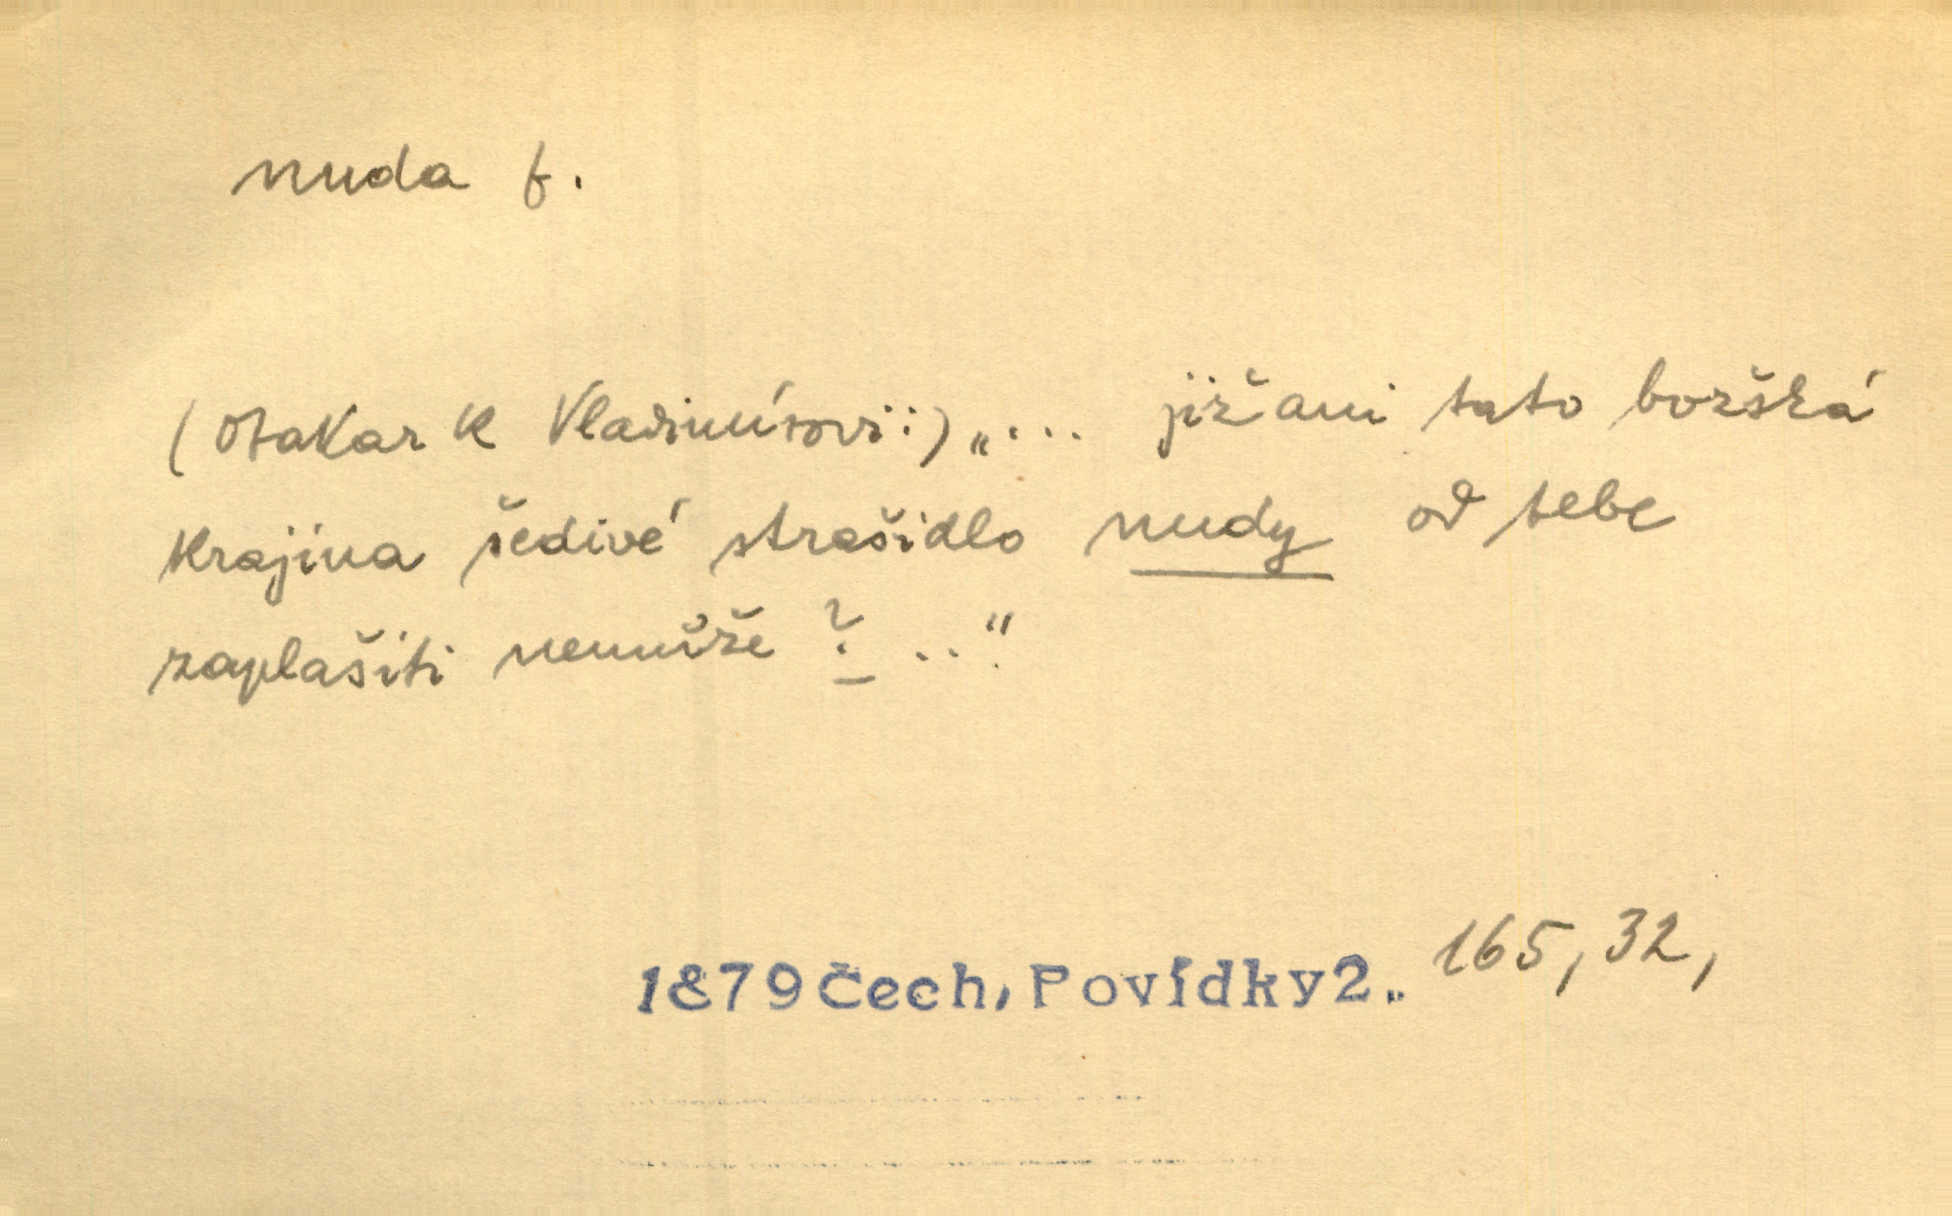 nuda f.
(Otakar k Vladimírovi:) „... jižani tato božská
krajina šedivé strašidlo nudy od tebe
zaplašiti nemůže? ..."
1879 Čech, Povídky 2.. 165, 32,